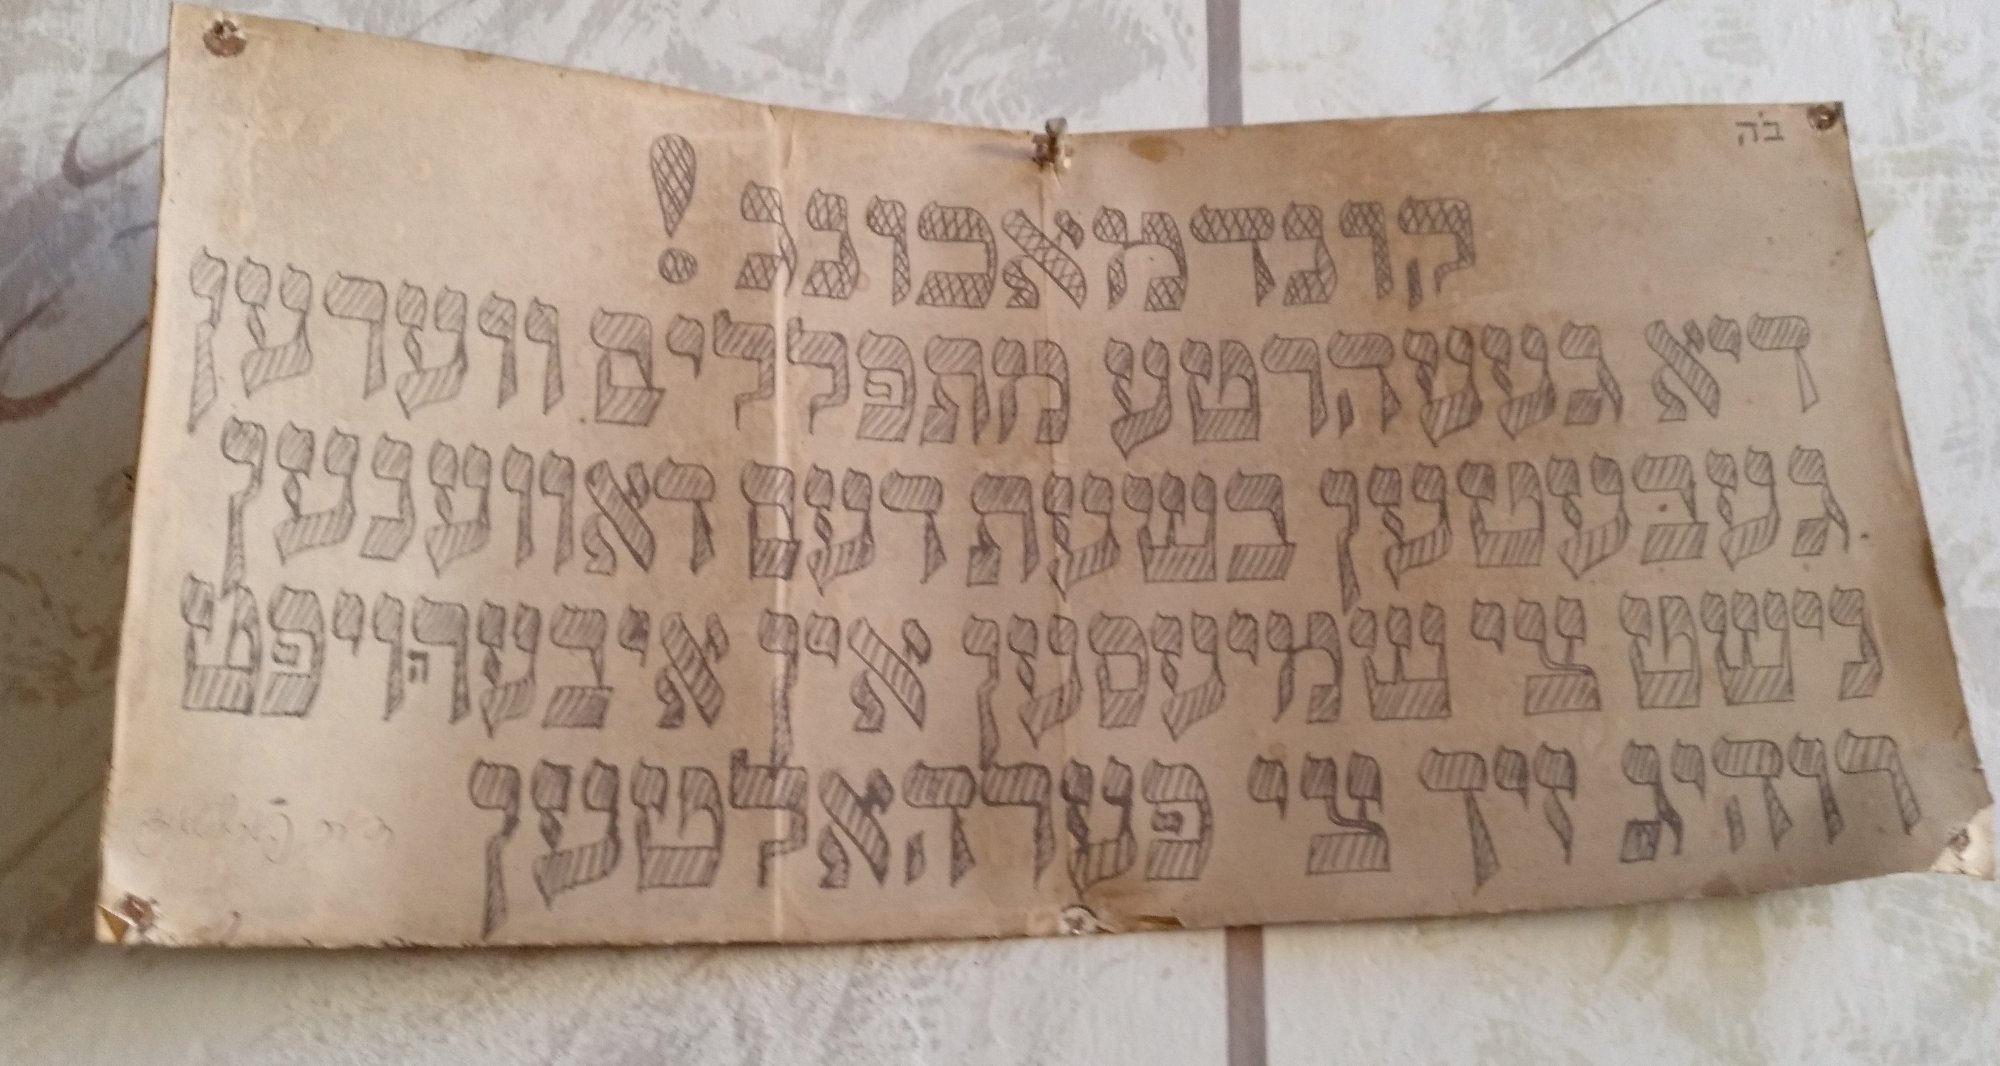 ב'ה
קונדמאכונג!
דיא געעהרטע מתפללים ווערען
געבעטען בשעת דעם דאווענען
נישט צי שמיעסען אין איבערהויפט
רוהיג זיך צי פערהאלטען